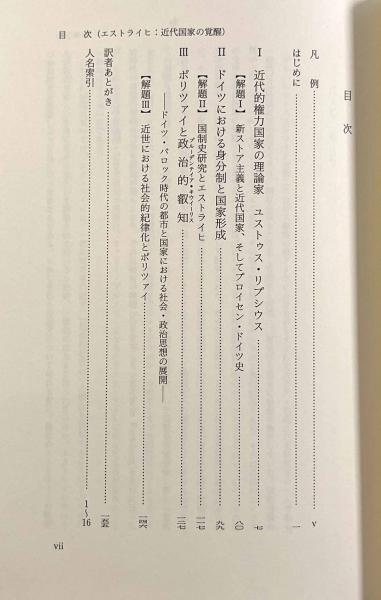 目　次（エストライヒ：近代国家の覚醒）
目　次
凡　例 v
はじめに 一
Ⅰ　近代的権力国家の理論家　ユストゥス・リプシウス 七
【解題Ⅰ】　新ストア主義と近代国家、そしてプロイセン・ドイツ史 八〇
Ⅱ　ドイツにおける身分制と国家形成 九九
【解題Ⅱ】　国制史研究とエストライヒ 一一七
Ⅲ　ポリツァイと政治的叡知 一二七
プルーデンティア・キウィーリス
――ドイツ・バロック時代の都市と国家における社会・政治思想の展開――
【解題Ⅲ】　近世における社会的紀律化とポリツァイ 一四六
訳者あとがき 一五五
人名索引 1〜16
vii